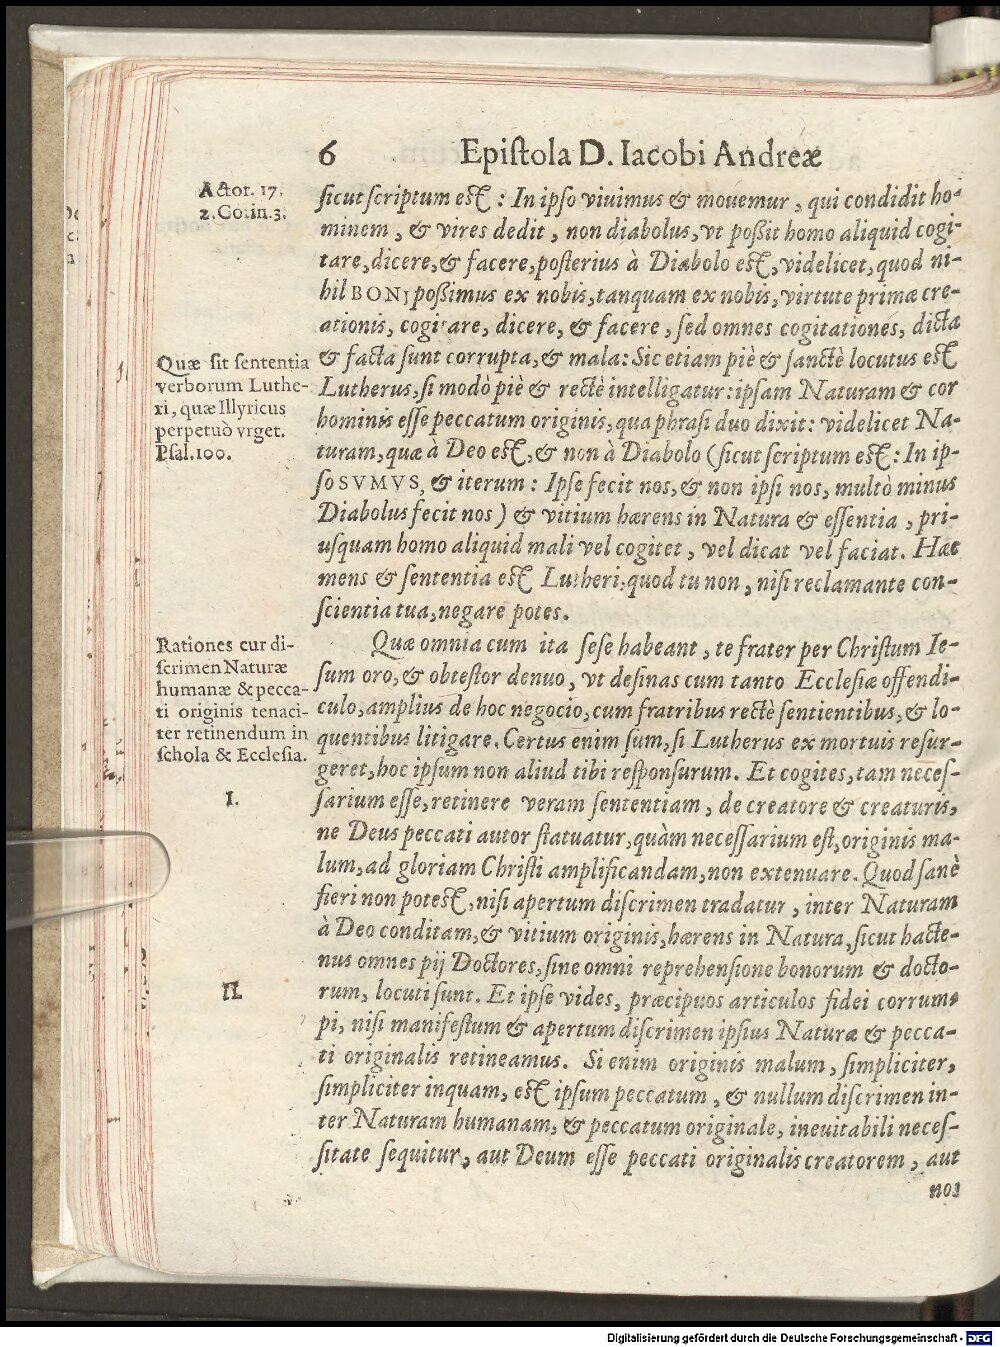 6 Epiſtola D. Iacobi Andreæ
Actor. 17.
2. Corin. 3.
ſicut ſcriptum eſt : In ipſo viuimus & mouemur , qui condidit ho-
minem , & vires dedit , non diabolus, vt poßit homo aliquid cogi-
tare, dicere, & facere, poſterius à Diabolo eſt, videlicet, quod ni-
hil BONI poßimus ex nobis, tanquam ex nobis, virtute primæ cre-
ationis, cogitare, dicere, & facere , ſed omnes cogitationes, dicta
& facta ſunt corrupta, & mala: Sic etiam piè & ſanctè locutus eſt
Lutherus, ſi modò piè & rectè intelligatur: ipſam Naturam & cor
hominis eſſe peccatum originis, qua phraſi duo dixit: videlicet Na-
turam, quæ à Deo eſt, & non à Diabolo (ſicut ſcriptum eſt: In ip-
ſo SVMVS, & iterum : Ipſe fecit nos, & non ipſi nos, multò minus
Diabolus fecit nos ) & vitium hærens in Natura & eſſentia , pri-
uſquam homo aliquid mali vel cogitet , vel dicat vel faciat. Hæc
mens & ſententia eſt Lutheri: quod tu non , niſi reclamante con-
ſcientia tua, negare potes.
Quæ ſit ſententia
verborum Luthe-
ri, quæ Illyricus
perpetuò vrget.
Pſal. 100.
Quæ omnia cum ita ſeſe habeant , te frater per Chriſtum Ie-
ſum oro, & obteſtor denuo, vt deſinas cum tanto Eccleſiæ offendi-
culo, amplius de hoc negocio, cum fratribus rectè ſentientibus, & lo-
quentibus litigare. Certus enim ſum, ſi Lutherus ex mortuis reſur-
geret, hoc ipſum non aliud tibi reſponſurum. Et cogites, tam neceſ-
ſarium eſſe, retinere veram ſententiam , de creatore & creaturis,
ne Deus peccati autor ſtatuatur, quàm neceſſarium eſt, originis ma-
lum, ad gloriam Chriſti amplificandam, non extenuare. Quod ſanè
fieri non poteſt, niſi apertum diſcrimen tradatur , inter Naturam
à Deo conditam, & vitium originis, hærens in Natura, ſicut hacte-
nus omnes pij Doctores, ſine omni reprehenſione bonorum & docto-
rum, locuti ſunt. Et ipſe vides, præcipuos articulos fidei corrum-
pi, niſi manifeſtum & apertum diſcrimen ipſius Naturæ & pecca-
ti originalis retineamus. Si enim originis malum , ſimpliciter,
ſimpliciter inquam, eſt ipſum peccatum , & nullum diſcrimen in-
ter Naturam humanam, & peccatum originale, ineuitabili neceſ-
ſitate ſequitur, aut Deum eſſe peccati originalis creatorem , aut
nos
Rationes cur di-
ſcrimen Naturæ
humanæ & pecca-
ti originis tenaci-
ter retinendum in
ſchola & Eccleſia.
I.
II.
Digitalisierung gefördert durch die Deutsche Forschungsgemeinschaft - DFG